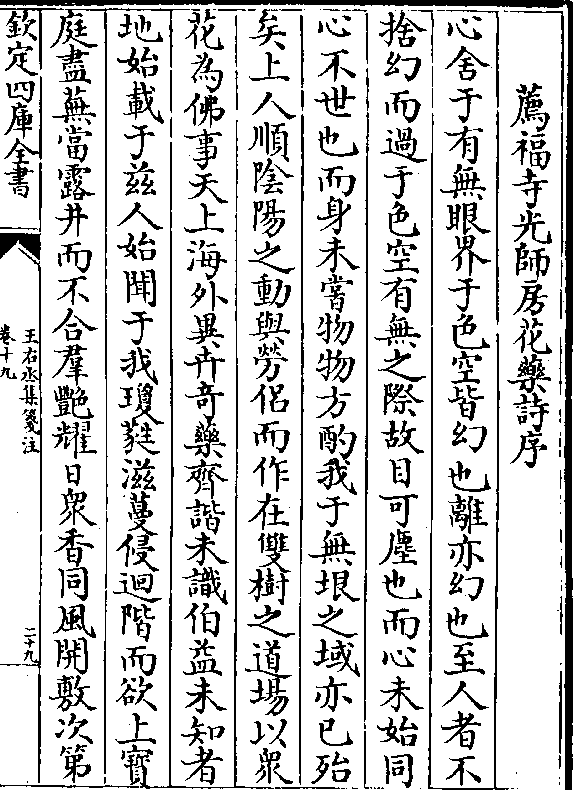 薦福寺光師房花藥詩序
心舍于有無眼界于色空皆幻也離亦幻也至人者不
捨幻而過于色空有無之際故目可塵也而心未始同
心不世也而身未嘗物物方酌我于無垠之域亦已殆
矣上人順陰陽之動與勞侶而作在雙樹之道場以衆
花為佛事天上海外異卉奇藥齊諧未識伯益未知者
地始載于兹人始聞于我瓊蕤滋蔓侵迴階而欲上寶
庭盡蕪當露井而不合羣艷耀日衆香同風開敷次第
欽定四庫全書
王右丞集箋注
卷十九
二十九